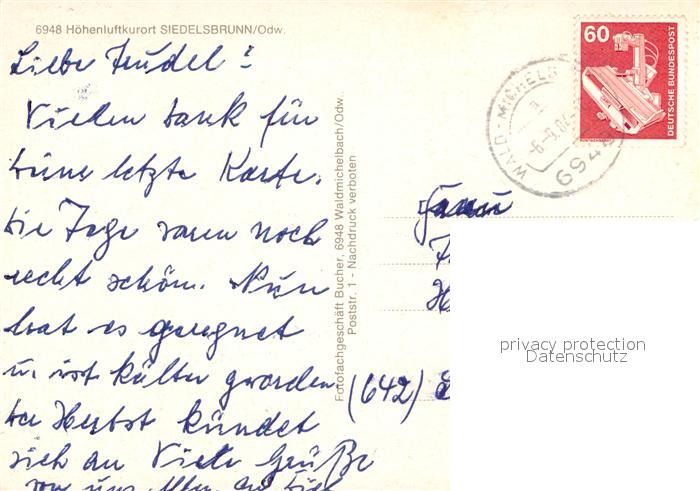 6948 Höhenluftkurort SIEDELSBRUNN/Odw.
60
DEUTSCHE BUNDESPOST
WALD-MICHELB
a
-6.-9.84
6948
Liebe Trudel!
Vielen Dank für
Deine letzte Karte.
Die Tage waren noch
recht schön. Nun
hat es geregnet
u. ist kälter geworden
Der Herbst kündet
sich an Viele Grüße
von uns Allen an Dich
Fotofachgeschäft Bucher, 6948 Waldmichelbach/Odw.
Poststr. 1 - Nachdruck verboten
(642)
privacy protection
Datenschutz